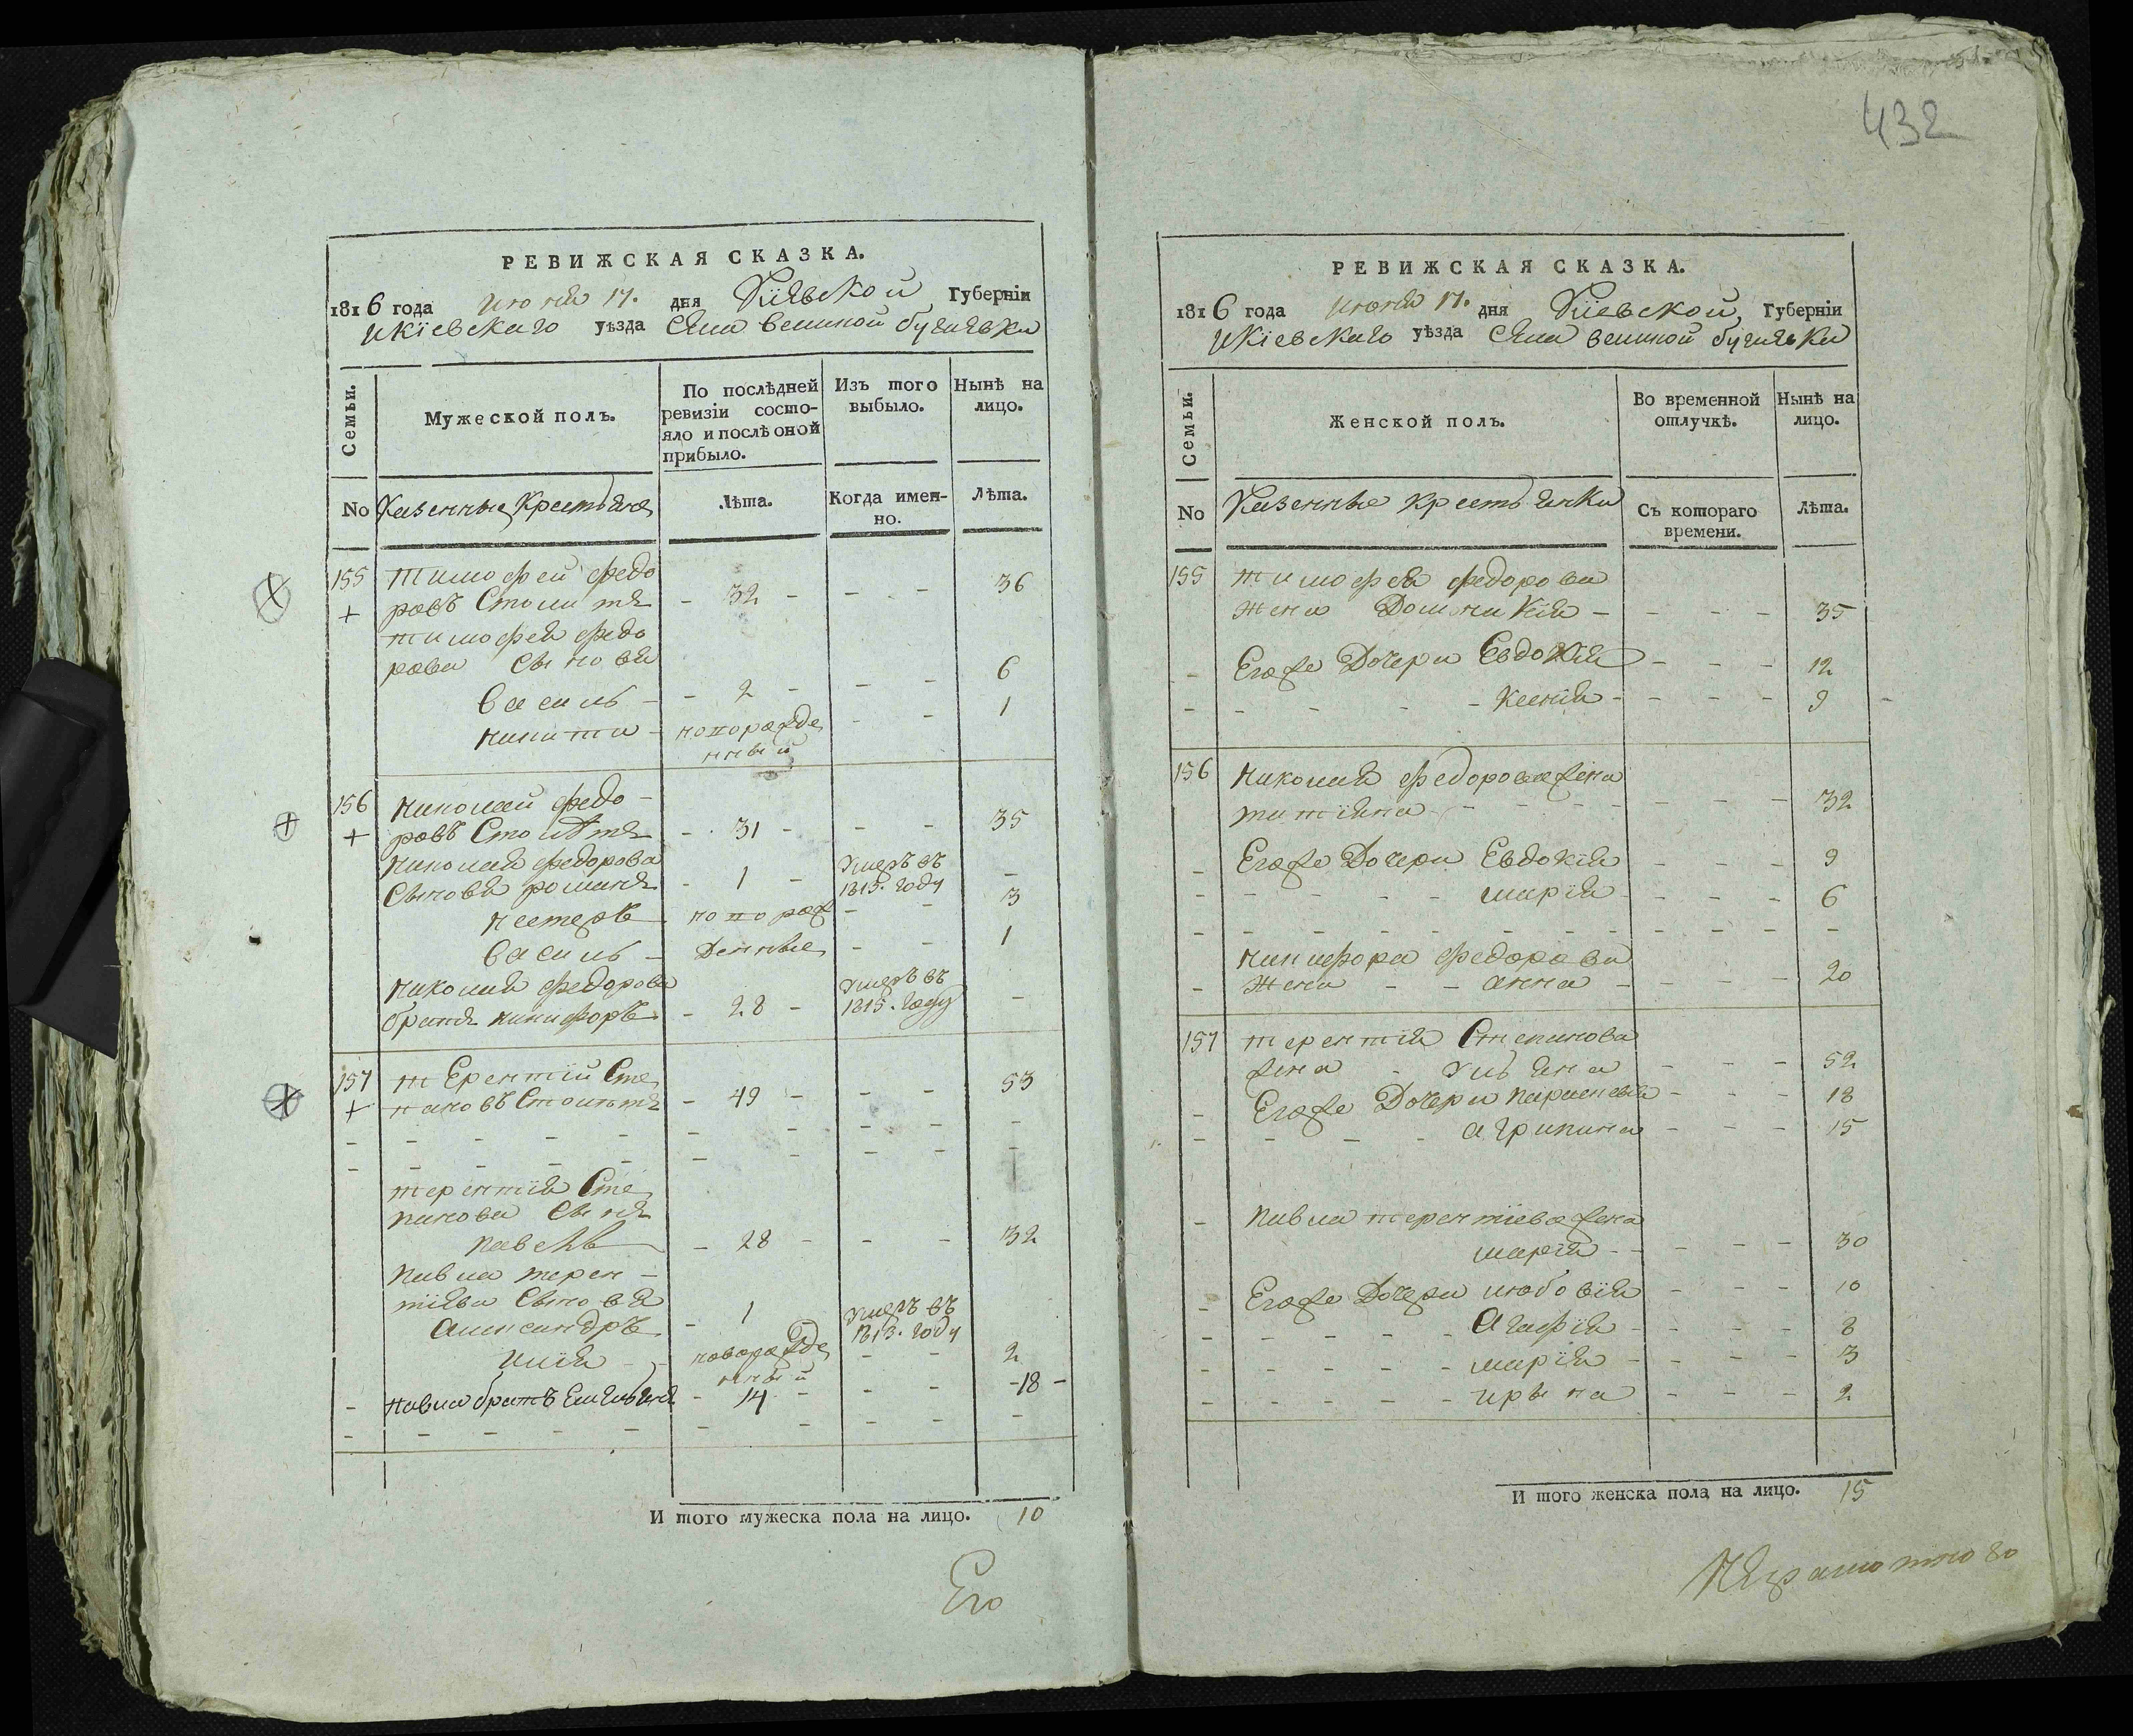 432
РЕВИЖСКАЯ СКАЗКА.
1816 года июня 17. дня Кіевской Губерніи
Икіевскаго уѣзда села великой бугаевки
Семьи.
Мужеской полъ.
По послѣдней ревизіи состояло и послѣ оной прибыло.
Изъ того выбыло.
Нынѣ на лицо.
No Казенные Крестьяне
Лѣта.
Когда именно.
Лѣта.
155 тимофей федо
+ ровъ - 32 - - - - 36
тимофея федо
рова Сыновя
василь - - 2 - - - 6
никита - новорожде - - 1
нный
156 николай федо-
+ ровъ - 31 - - - 35
николая федорова умеръ въ
Сыновя романъ - 1 - 1815. году -
нестеръ новорож - - 3
василь - денные - - 1
николая федорова умеръ въ
братъ никифоръ - 28 - 1815. году -
157 терентий Сте
+ пановъ - 49 - - - 53
терентия Сте
панова Сынъ
павелъ - 28 - - - 32
павла терен-
тиева Сыновя умеръ въ
александръ - 1 1813. году
илия - новорожде - - 2
нный
- павла братъ Емельянъ - 14 - - - -18-
И того мужеска пола на лицо. 10
Его
РЕВИЖСКАЯ СКАЗКА.
1816 года июня 17. дня Кіевской Губерніи
Икіевскаго уѣзда села великой бугаевки
Семьи.
Женской полъ.
Во временной отлучкѣ.
Нынѣ на лицо.
No Казенные крестьянки
Съ котораго времени.
Лѣта.
155 тимофея федорова
жена Доминикия - - - - 35
- Егоже Дочери Евдокия - - - 12
- - - - - Ксения - - - - 9 -
156 николая федорова жена
татияна - - - - - - - 32
- Егоже Дочери Евдокия - - - 9
- - - - - мария - - - - 6
никифора федорова
- жена - - анна - - - - 20
157 терентия Степанова
жена - улияна - - - 52
- Егоже Дочери параскевия - - - 18
- - - - агрипина - - - 15
- павла терентиева жена
мария - - - - - 30
- Егоже Дочери любовия - - - 10
- - - - - - Агафия - - - - 8
- - - - - - мария - - - - 3
- - - - - - ирына - - - 2
И того женска пола на лицо. 15